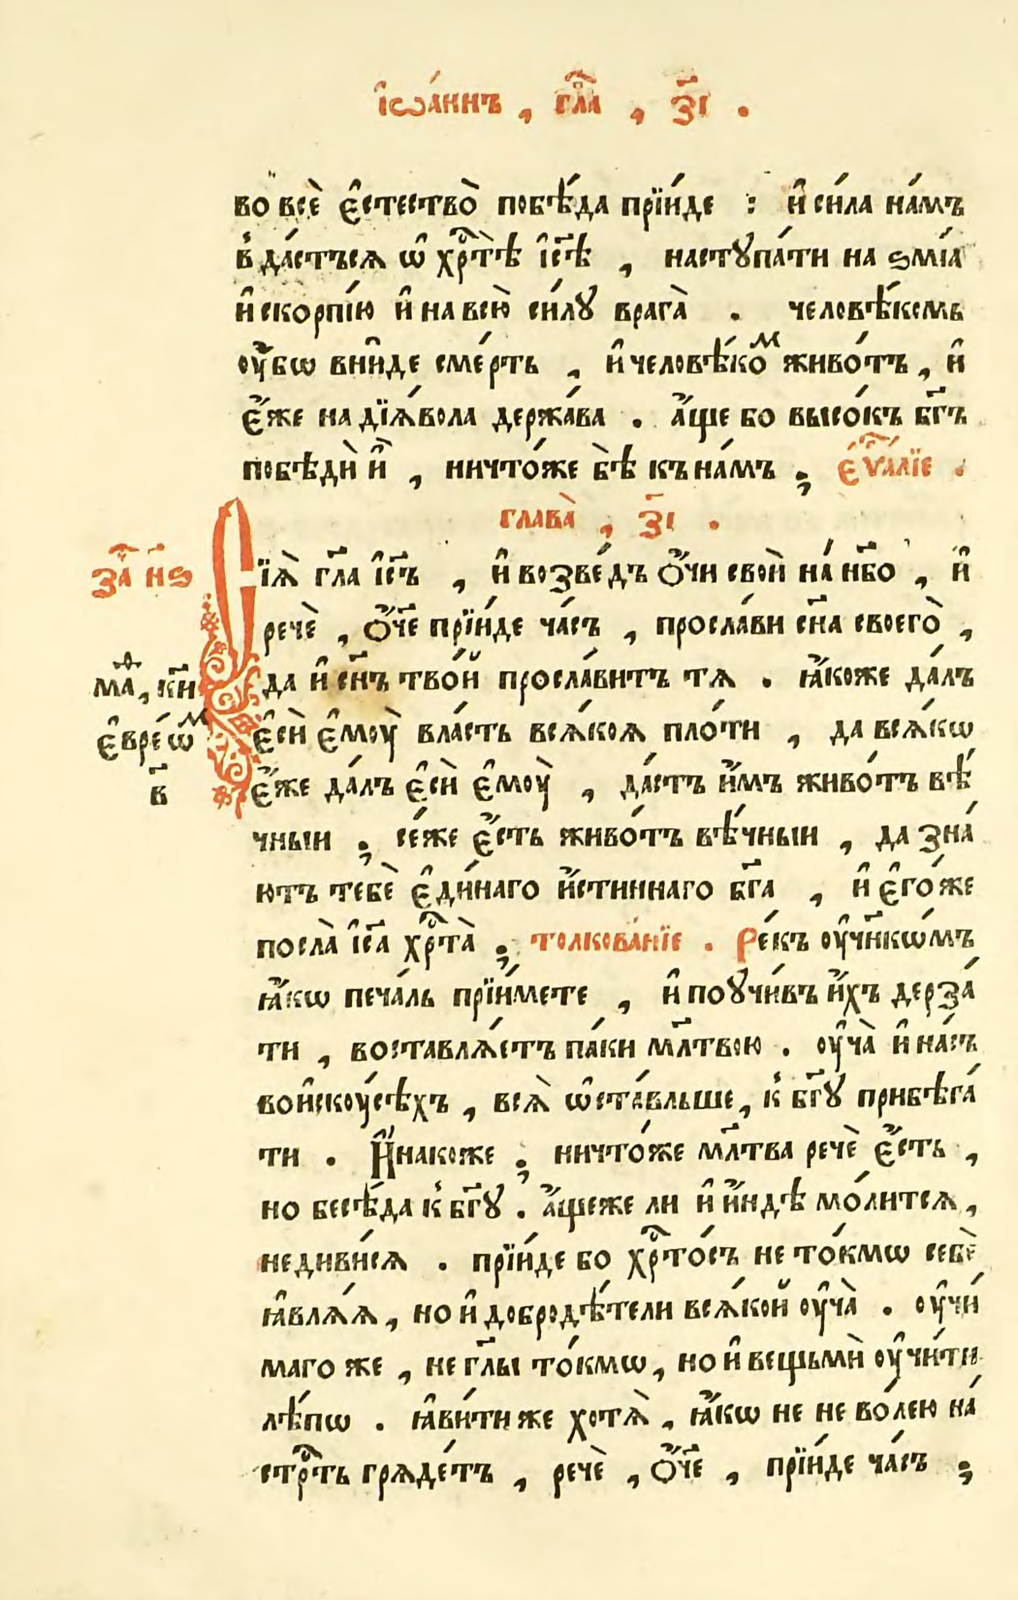 і҆ѡа́ннъ , гл҃а , з҃і .
во всѐ є҆стество̀ побѣ́да прїи́де : и҆ си́ла на́мъ
в̾да́стъся ѡ҆ хрⷭ҇тѣ̀ і҆с҃ѣ , наступа́ти на ѕмі́а
и҆ скорпі́ю и҆ на всю̀ си́лу врага̀ . человѣ́комъ
оу҆́бѡ вни́де сме́рть , и҆ человѣ́коⷨ живо́тъ , и҆
є҆́же на дїѧ́вола держа́ва . а҆́ще бо высо́къ бг҃ъ
побѣдѝ и҆̀ , ничто́же бѣ̀ къ на́мъ ; є҆ѵⷢ҇а́лїе .
глава̀ , з҃і .
за҃ нѕ
Сїѧ̀ гл҃а і҆с҃ъ , и҆ возве́дъ о҆́чи своѝ на́ нб҃о , и҆
речѐ , о҆́ч҃е прїи́де ча́съ , просла́ви сн҃а своего̀ ,
маⷴ , к҃и
да и҆ сн҃ъ тво́й просла́витъ тѧ . ꙗ҆́коже да́лъ
є҆вре́ѡⷨ
є҆сѝ є҆моу̀ вла́сть всѧ́коѧ пло́ти , да всѧ́кѡ
в҃
є҆́же да́лъ є҆сѝ є҆моу̀ , да́стъ и҆̀мъ живо́тъ вѣ́
чныи ; се́же є҆́сть живо́тъ вѣ́чныи , да зна́
ютъ тебѐ є҆ди́наго и҆́стиннаго бг҃а , и҆ є҆го́же
посла̀ і҆с҃а хрⷭ҇та̀ ; толкова́нїе . Ре́къ оу҆чн҃кѡ́мъ
ꙗ҆́кѡ печа́ль прїи́мете , и҆ поучи́въ и҆́хъ дерза́
ти , воставлѧ́етъ па́ки мл҃твою . оу҆ча̀ и҆ на́съ
во и҆скоу́сѣхъ , всѧ̀ ѡ҆ста́вльше , к̾ бг҃у прибѣга́
ти . И҆́накоже ; ничто́же мл҃тва речѐ є҆́сть ,
но бесѣ́да к̾ бг҃у . а҆́щеже ли и҆ и҆́ндѣ мо́литсѧ ,
не диви́сѧ . прїи́де бо хрⷭ҇то́съ не то́кмѡ себѐ
ꙗ҆влѧ́ѧ , но и҆ добродѣ́тели всѧ́кой оу҆ча̀ . оу҆чи́
маго же , не гл҃ы то́кмѡ , но и҆ вещьмѝ оу҆чи́ти
лѣ́пѡ . ꙗ҆ви́ти же хотѧ̀ , ꙗ҆́кѡ не не во́лею на́
стрⷭ҇ть грѧде́тъ , речѐ , о҆́ч҃е , прїи́де ча́съ ;